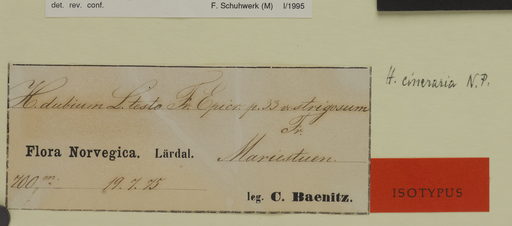 det. rev. conf. F. Schuhwerk (M) I/1995
H. dubium L. testo Fr. Epicr. p. 33 a strigosum
Fr.
H. cineraria N.P.
Flora Norvegica. Lärdal. Mariestuen.
700 m. 19.7.75
leg. C. Baenitz.
ISOTYPUS